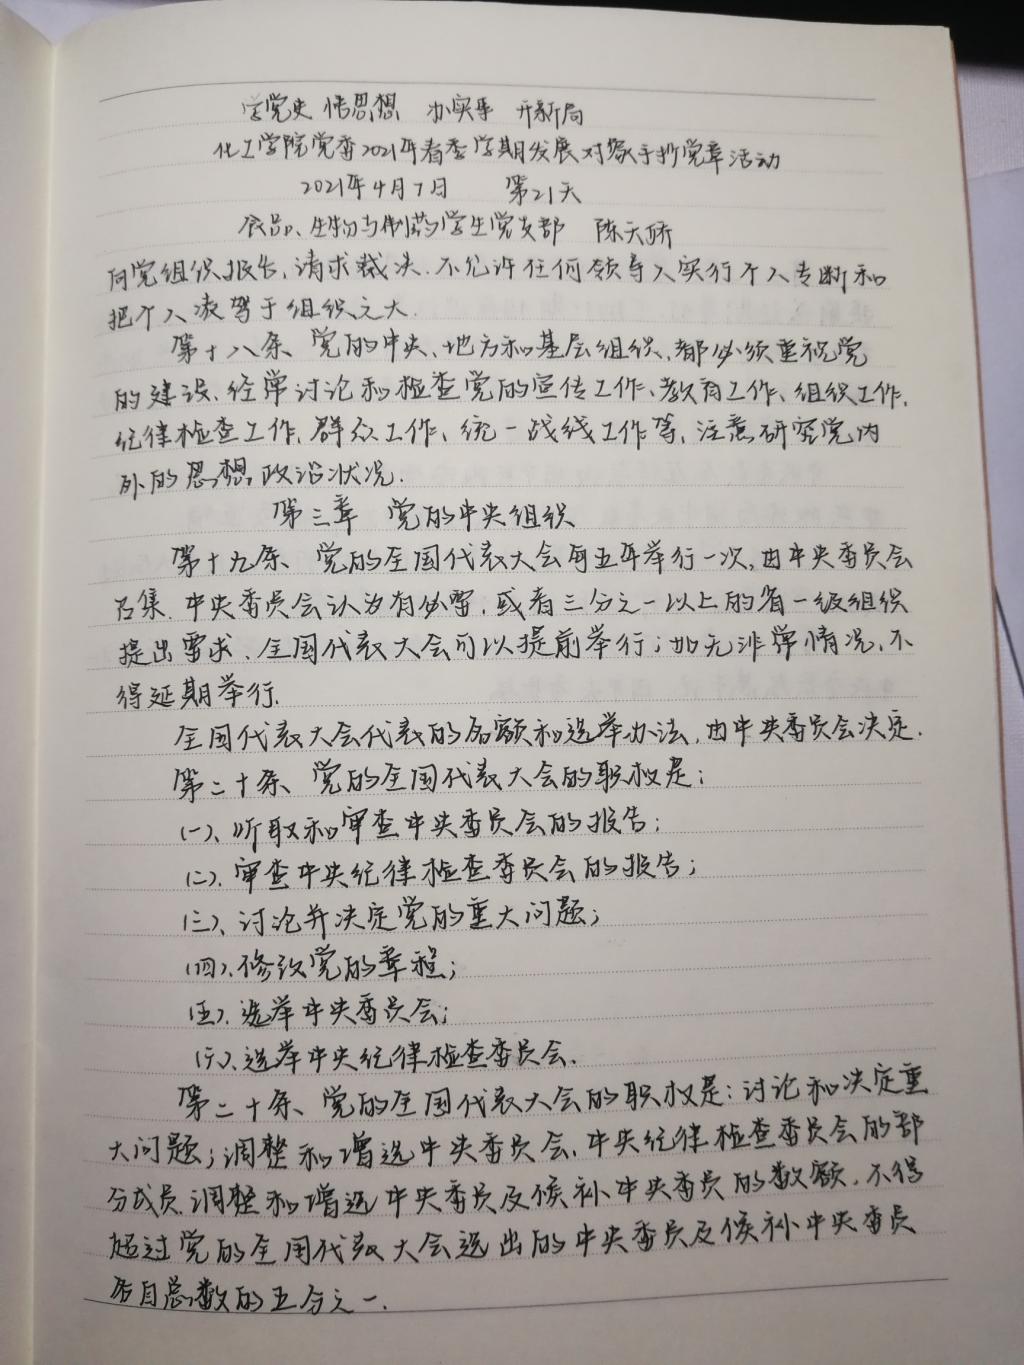 学党史 悟思想 办实事 开新局
化工学院党委2021年春季学期发展对象手抄党章活动
2021年4月7日 第21天
食品、生物与制药学生党支部 陈天骄
向党组织报告,请求裁决.不允许任何领导人实行个人专断和
把个人凌驾于组织之大.
第十八条、党的中央、地方和基层组织,都必须重视党
的建设、经常讨论和检查党的宣传工作、教育工作、组织工作,
纪律检查工作,群众工作、统一战线工作等,注意研究党内
外的思想政治状况.
第三章 党的中央组织
第十九条、党的全国代表大会每五年举行一次,由中央委员会
召集.中央委员会认为有必要,或者三分之一以上的省一级组织
提出要求、全国代表大会可以提前举行;如无非常情况,不
得延期举行.
全国代表大会代表的名额和选举办法,由中央委员会决定.
第二十条、党的全国代表大会的职权是;
(一)、听取和审查中央委员会的报告;
(二).审查中央纪律检查委员会的报告;
(三)、讨论并决定党的重大问题;
(四).修改党的章程;
(五).选举中央委员会;
(六).选举中央纪律检查委员会.
第二十条、党的全国代表大会的职权是:讨论和决定重
大问题;调整和增选中央委员会、中央纪律检查委员会的部
分成员.调整和增选中央委员及候补中央委员的数额,不得
超过党的全国代表大会选出的中央委员及候补中央委员
各自总数的五分之一.